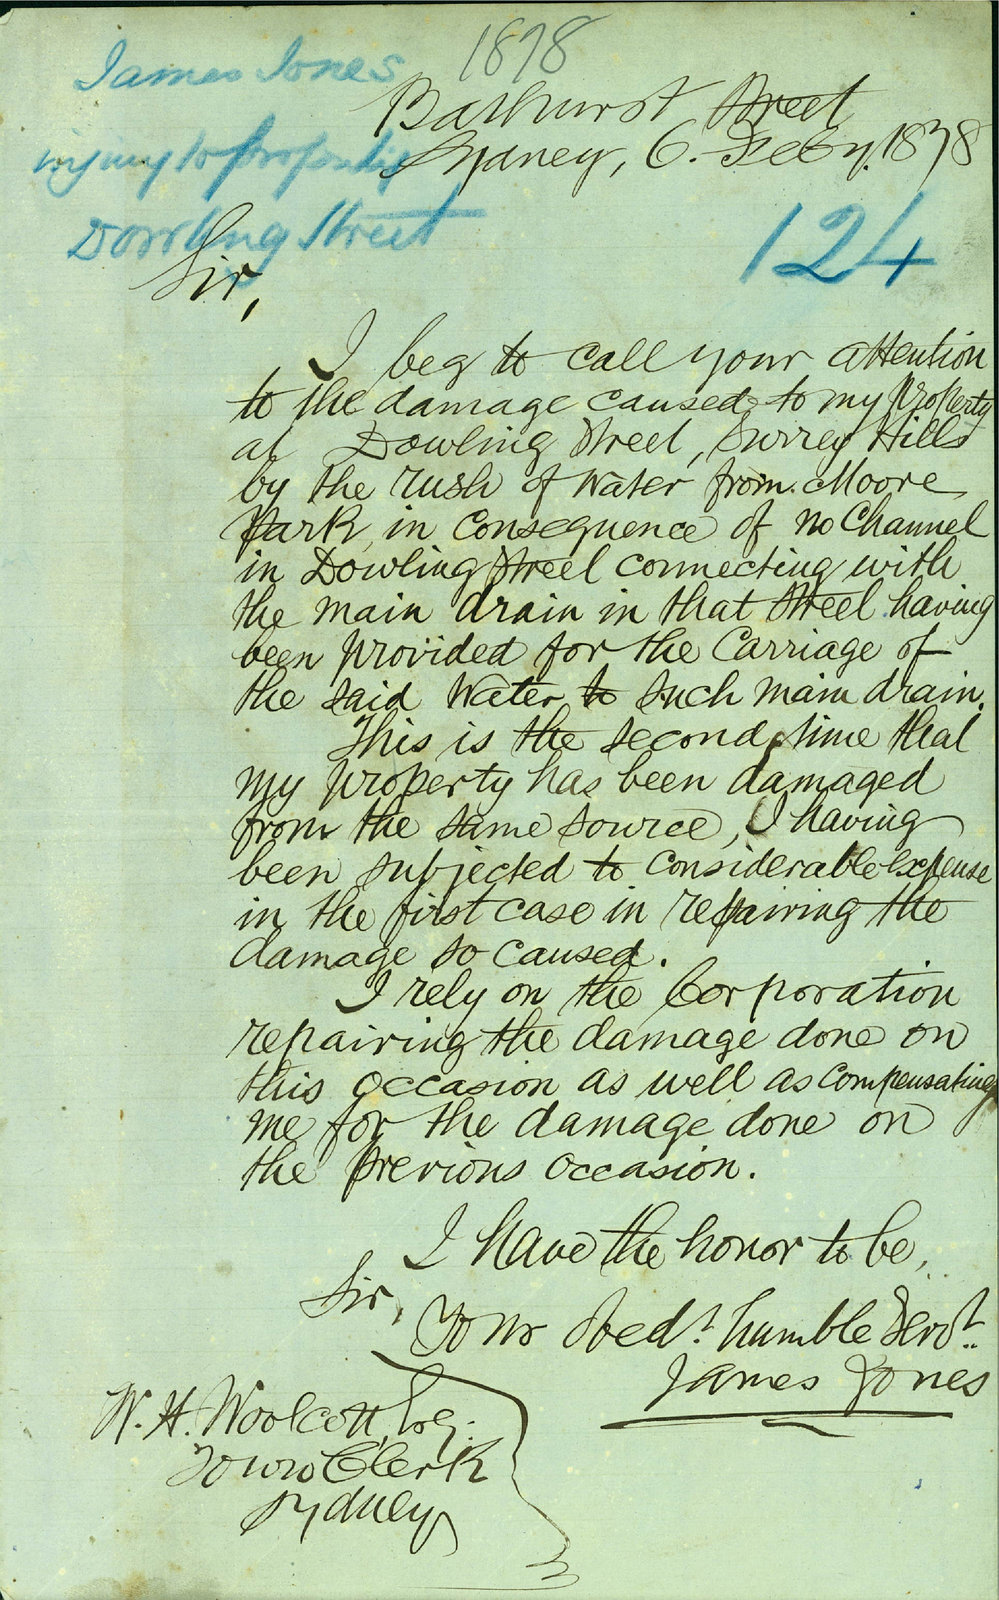 James Jones
injury to property
Dowling Street
1878
Bathurst Street
Sydney, 6. Feby. 1878
124
Sir,
I beg to call your attention
to the damage caused to my property
at Dowling Street, Surrey Hills
by the rush of water from Moore
Park, in consequence of no Channel
in Dowling Street connecting with
the main drain in that Street having
been provided for the Carriage of
the said water to such main drain.
This is the second time that
my property has been damaged
from the same source, I having
been subjected to considerable expense
in the first case in repairing the
damage so caused.
I rely on the Corporation
repairing the damage done on
this occasion as well as compensating
me for the damage done on
the previous occasion.
I have the honor to be,
Sir,
Your Obedt. humble Servt.
James Jones
W. H. Woolcott, Esq.
Town Clerk
Sydney